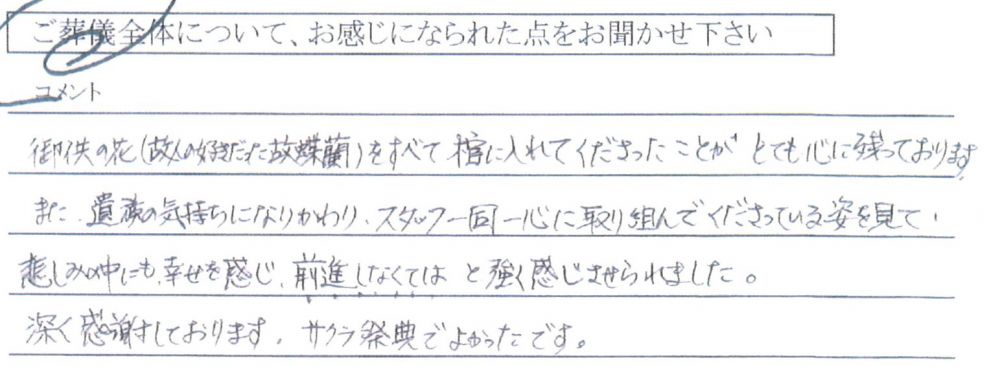 ご葬儀全体について、お感じになられた点をお聞かせ下さい
コメント
御供の花(故人の好きだった故蝶蘭)をすべて棺に入れてくださったことがとても心に残っております。
また、遺族の気持ちになりかわり、スタッフ一同一心に取り組んでくださっている姿を見て、
悲しみの中にも、幸せを感じ、前進しなくてはと強く感じさせられました。
深く感謝しております。サクラ祭典でよかったです。